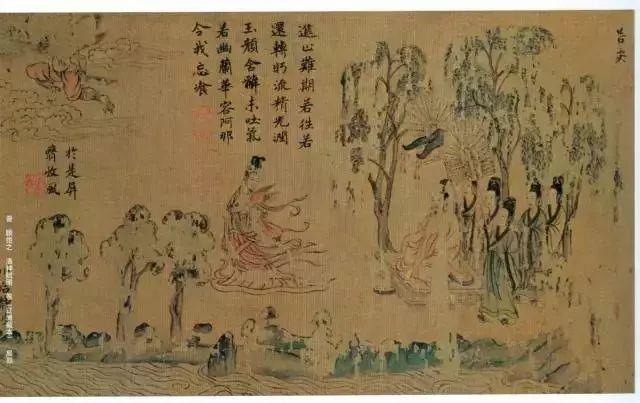 進止難期若往若
還轉眄流精光潤
玉顏含辭未吐氣
若幽蘭華容阿那
令我忘飡
於是屏
翳收風
顧愷之 洛神賦圖 局部